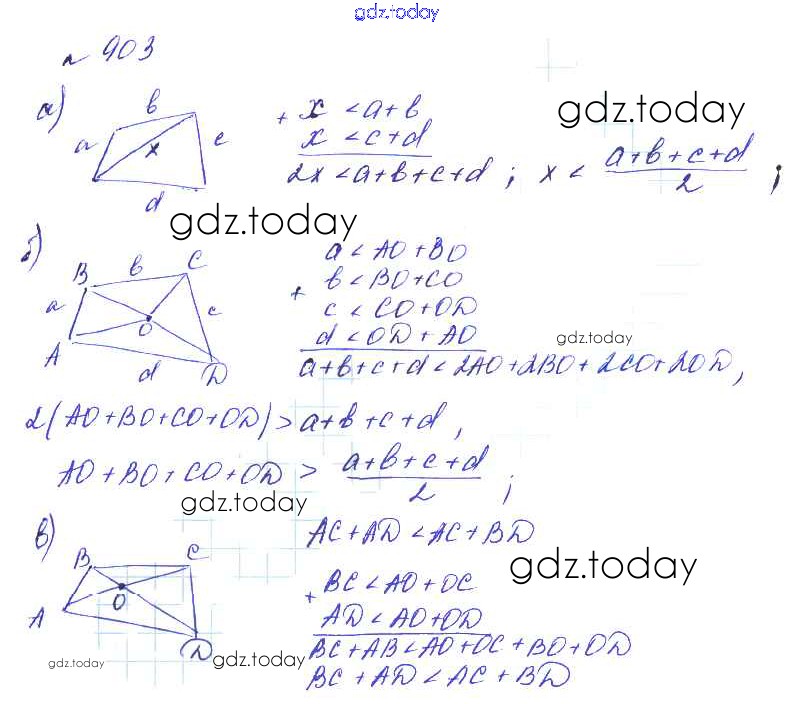 gdz.today
№ 903
а)
b
a
x
c
d
+ x < a+b
x < c+d
2x < a+b+c+d ; x < (a+b+c+d)/2 ;
gdz.today
gdz.today
б)
B
b
C
a
O
c
A
d
D
a < AO+BO
+ b < BO+CO
c < CO+OD
d < OD+AO
gdz.today
a+b+c+d < 2AO+2BO+2CO+2OD,
2(AO+BO+CO+OD) > a+b+c+d,
AO+BO+CO+OD > (a+b+c+d)/2 ;
gdz.today
в)
B
C
O
A
D
AC+AD < AC+BD
gdz.today
+ BC < AO+OC
AD < AO+OD
BC+AB < AO+OC+BO+OD
BC+AD < AC+BD
gdz.today
gdz.today